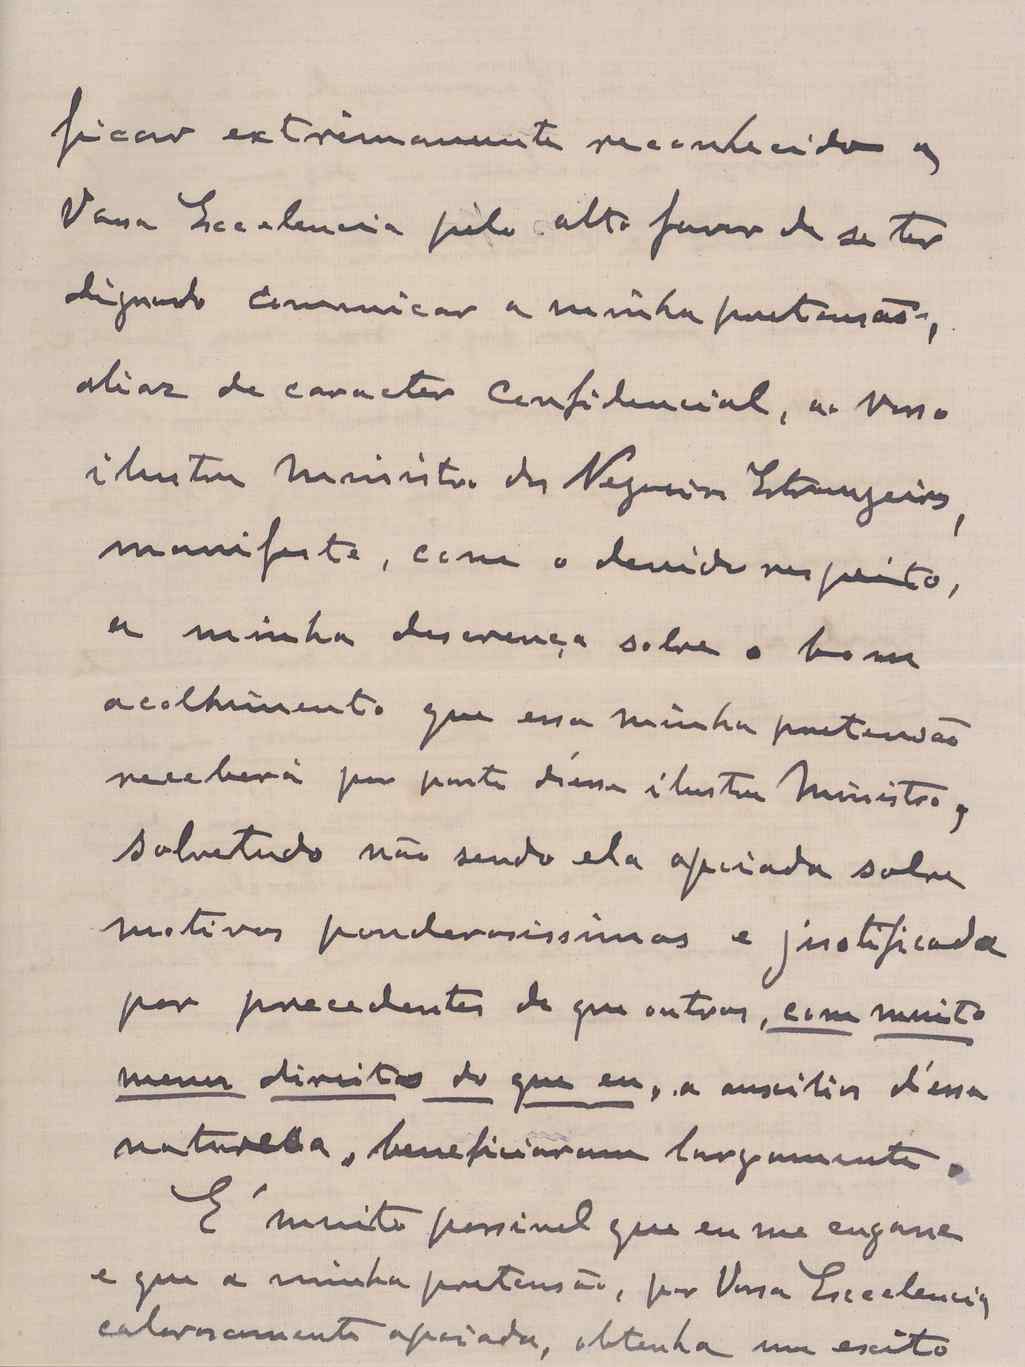 ficar extrêmamente reconhecido a
Vossa Excelencia pêlo alto favor de se ter
dignado comunicar a minha pretensão,
aliaz de caracter confidencial, ao vosso
ilustre Ministro dos Negocios Estrangeiros,
manifesto, com o devido respeito,
a minha descrença sobre o bom
acolhimento que essa minha pretensão
receberá por parte d'êsse ilustre Ministro,
sobretudo não sendo ela apoiada sobre
motivos ponderosissimos e justificada
por precedentes de que outros, com muito
menos direitos do que eu, a auxilios d'essa
natureza, beneficiaram largamente.
É muito possivel que eu me engane
e que a minha pretensão, por Vossa Excelencia
calorosamente apoiada, obtenha um exito